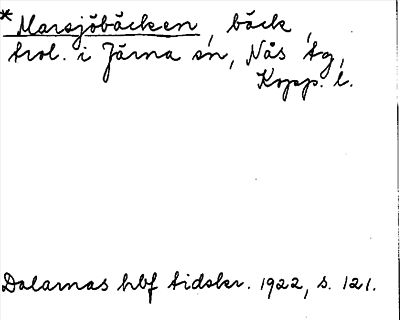 * Marsjöbäcken, bäck,
trol. i Järna sn, Nås tg,
Kopp. l.
Dalarnas hbf tidskr. 1922, s. 121.